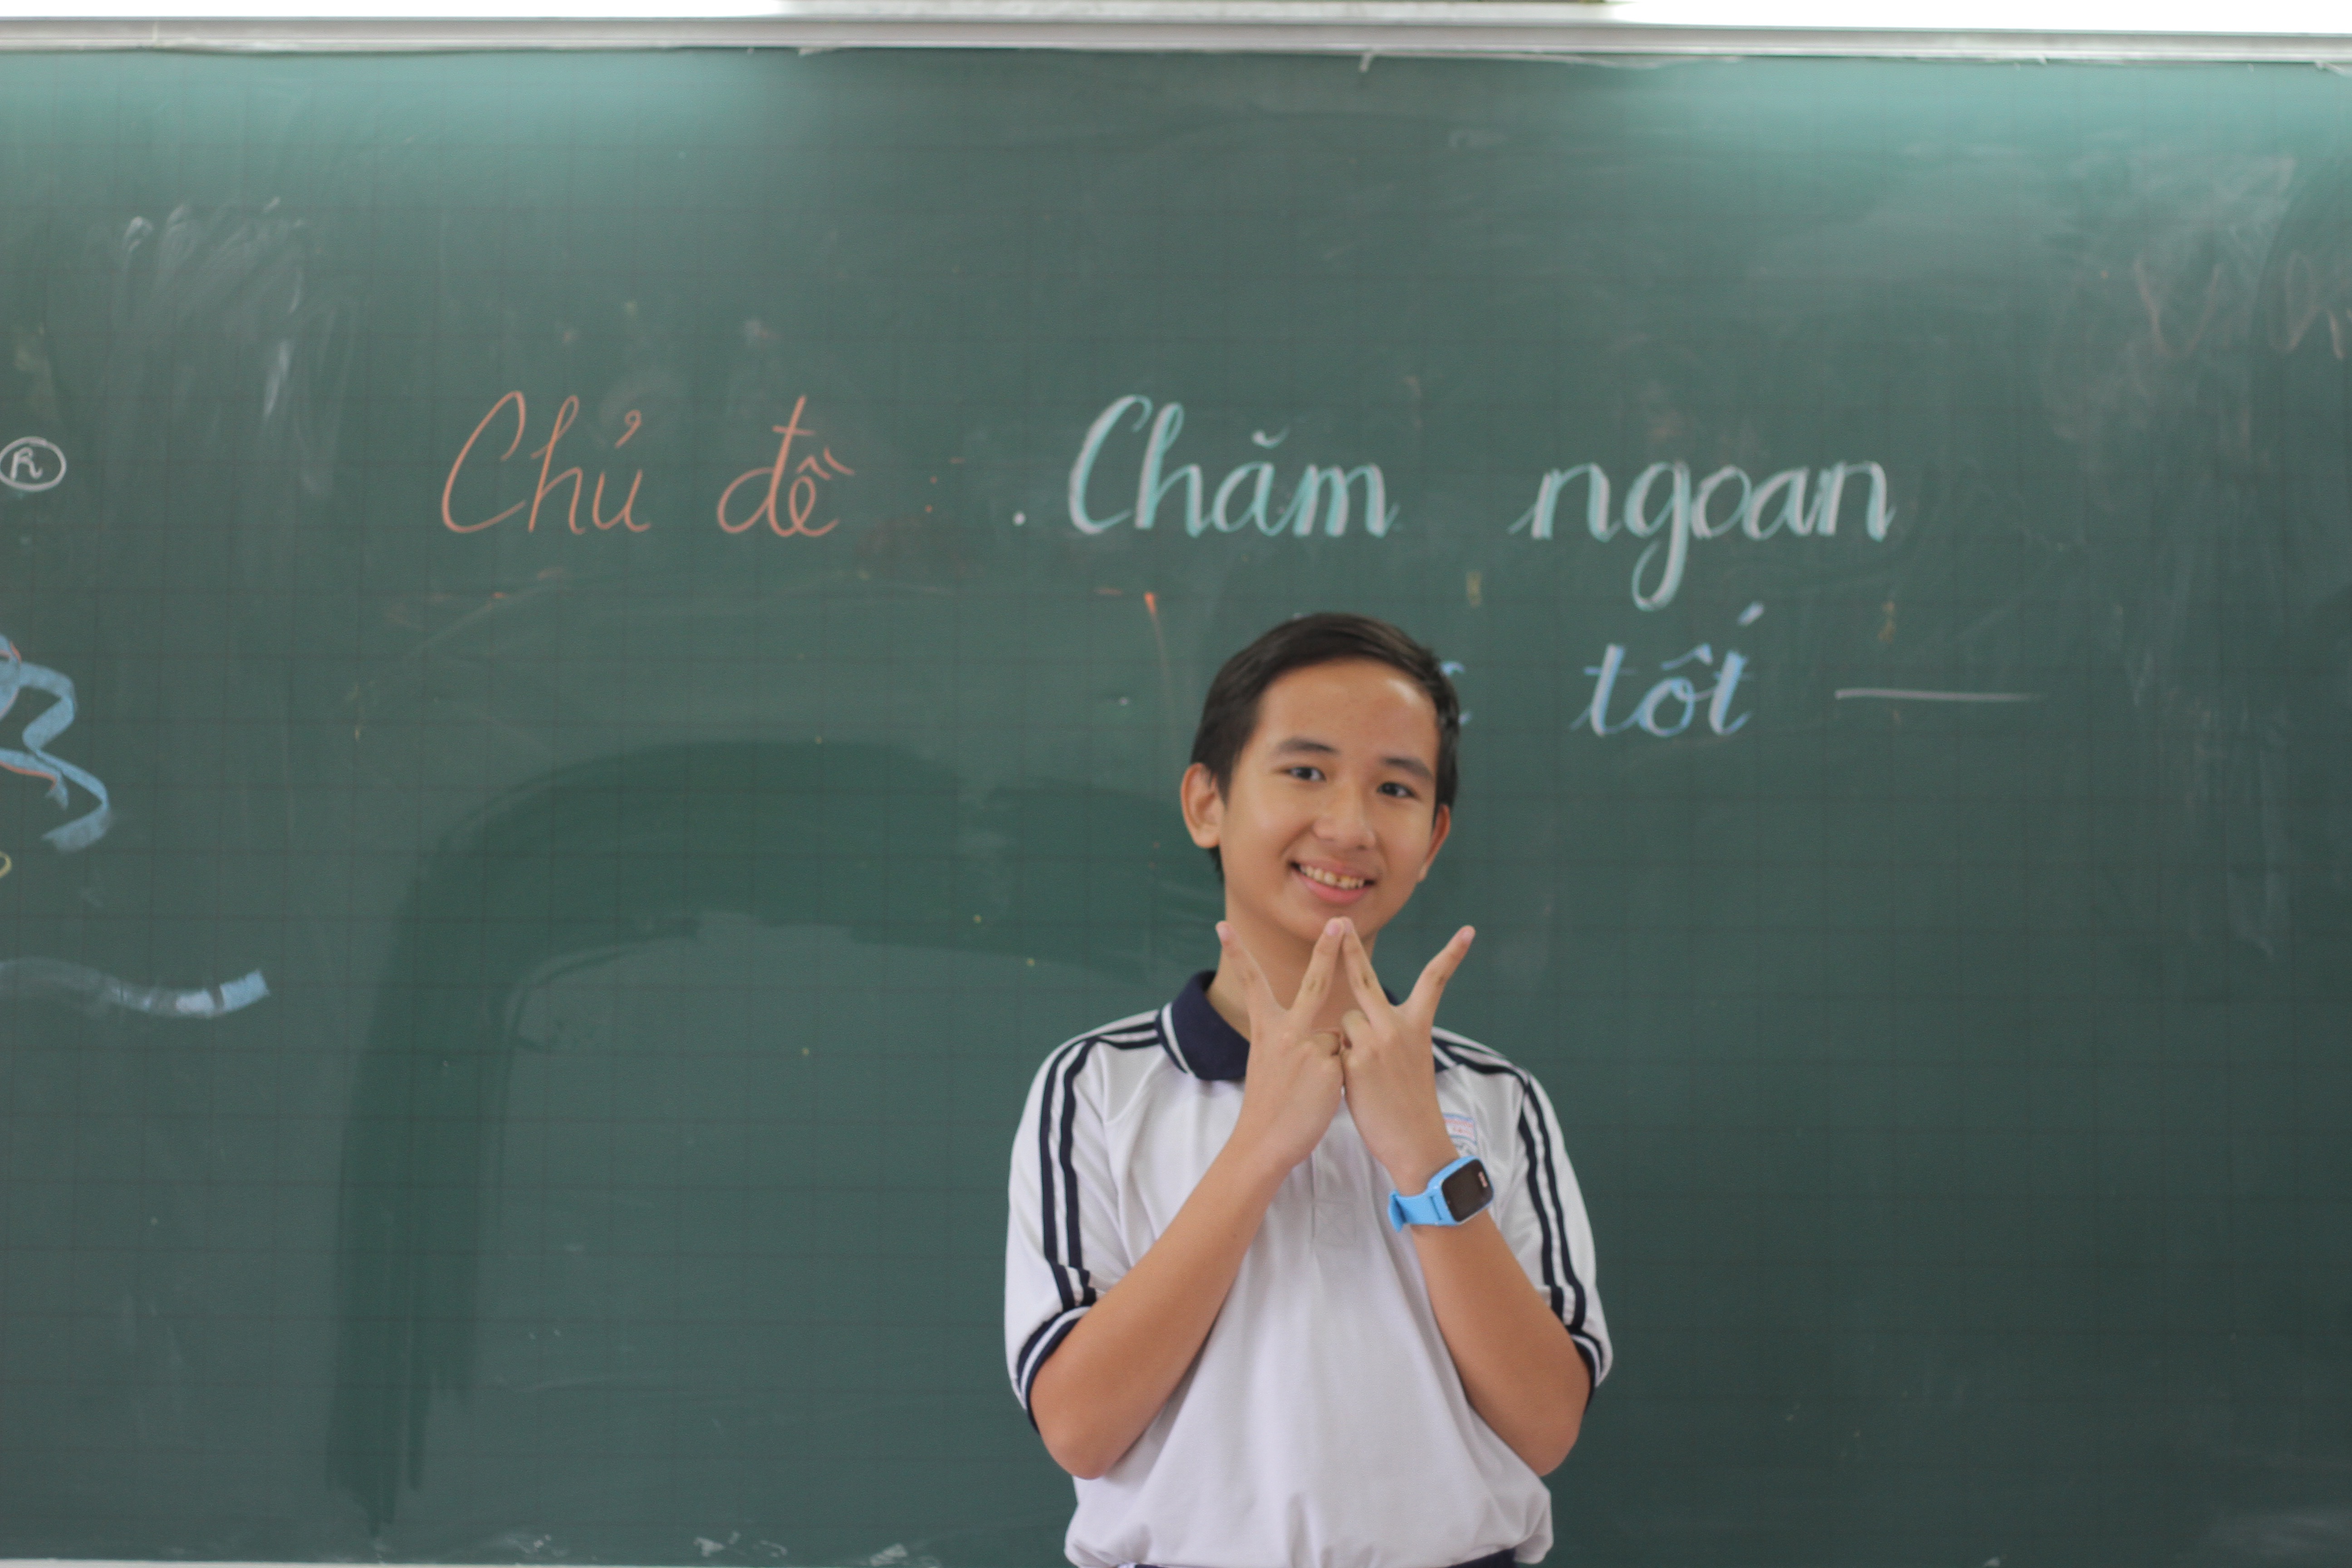 Chủ đề : Chăm ngoan
tốt
R